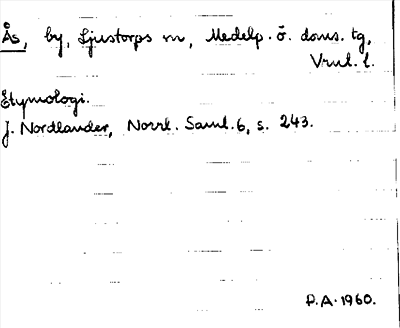 Ås, by, Ljustorps sn, Medelp. ö. doms. tg,
Vnl. l.
Etymologi.
J. Nordlander, Norrl. Saml. 6, s. 243.
P.A. 1960.